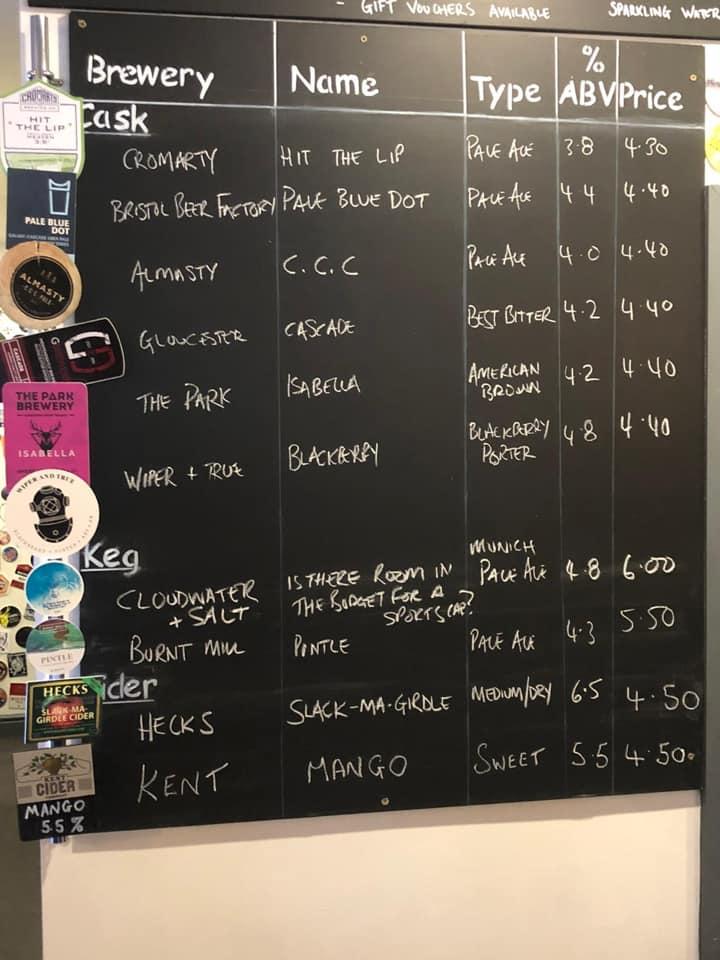 - GIFT VOUCHERS AVAILABLE SPARKLING WATER
Brewery Name Type % ABV Price
Cask
CROMARTY HIT THE LIP PALE ALE 3.8 4.30
BRISTOL BEER FACTORY PALE BLUE DOT PALE ALE 4.4 4.40
ALMASTY C.C.C PALE ALE 4.0 4.40
GLOUCESTER CASCADE BEST BITTER 4.2 4.40
THE PARK ISABELLA AMERICAN BROWN 4.2 4.40
WIPER + TRUE BLACKBERRY BLACKBERRY PORTER 4.8 4.40
Keg
CLOUDWATER + SALT IS THERE ROOM IN THE BUDGET FOR A SPORTSCAR? MUNICH PALE ALE 4.8 6.00
BURNT MILL PINTLE PALE ALE 4.3 5.50
Cider
HECKS SLACK-MA-GIRDLE MEDIUM/DRY 6.5 4.50
KENT MANGO SWEET 5.5 4.50
CROMARTY
HIT
THE LIP
3.8%
PALE BLUE
DOT
ALMASTY
THE PARK
BREWERY
ISABELLA
WIPER AND TRUE
PINTLE
HECKS
SLACK-MA-
GIRDLE CIDER
KENT
CIDER
MANGO
5.5 %